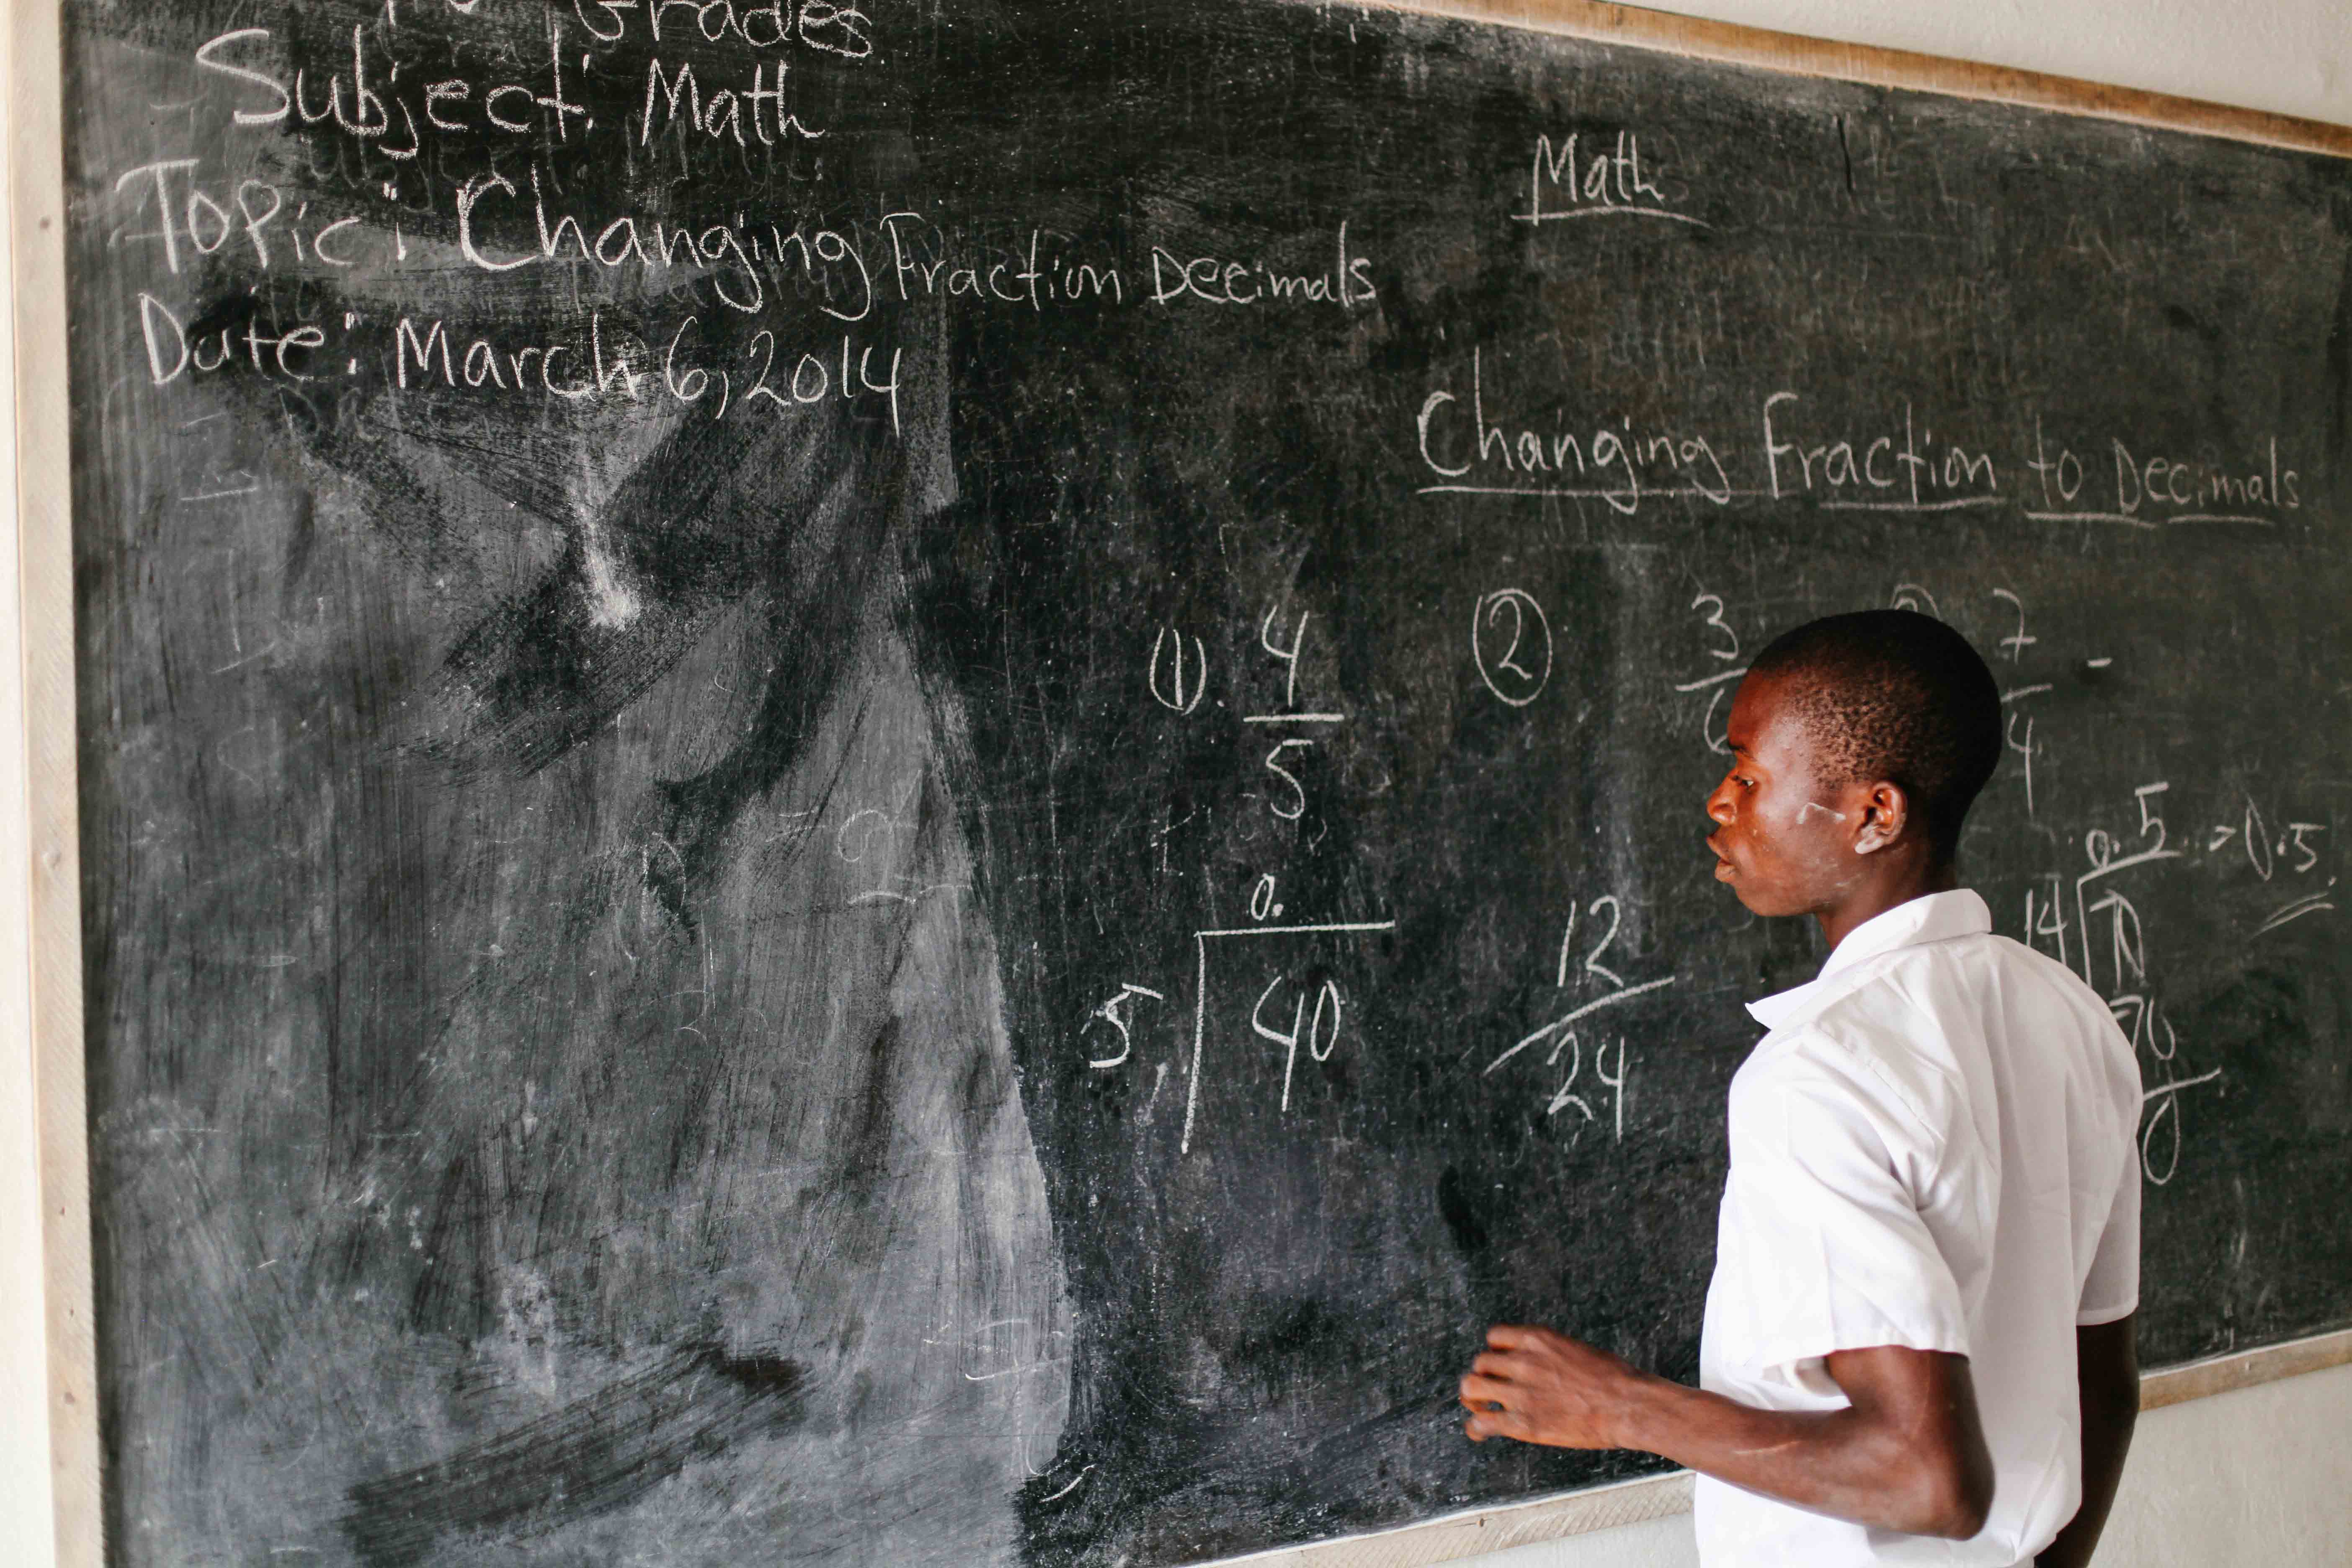 Grades
Subject: Math
Topic: Changing Fraction Decimals
Date: March 6, 2014
Math
Changing Fraction to Decimals
(1). 4
5
0.
5 40
2
12
24
3
6
7
4
0.5 = 0.5
14 70
70
0